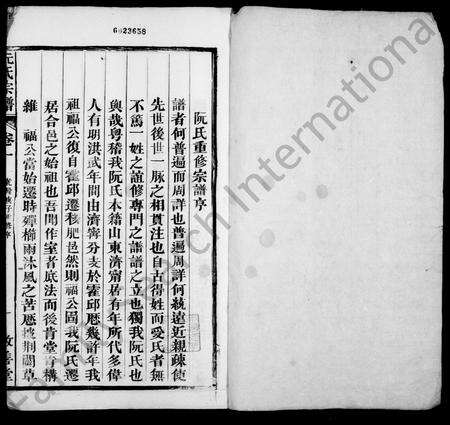 6023658
阮氏重修宗譜序
譜者何普遍而周詳也普遍周詳何統遠近親疎使
先世後世一脈之相貫注也自古得姓而愛氏者無
不篤一姓之誼修專門之譜譜之立也獨我阮氏也
與哉粵稽我阮氏本籍山東濟甯居有年所代多偉
人有明洪武年間由濟甯分支於霍邱歷幾許年我
祖福公復自霍邱遷移肥邑然則福公固我阮氏遷
居合邑之始祖也吾聞作室者底法而後肯堂肯構
維 福公當始遷時殫櫛雨沐風之苦歷披荆闢草
阮氏宗譜
卷一
敦善堂
Family Search International